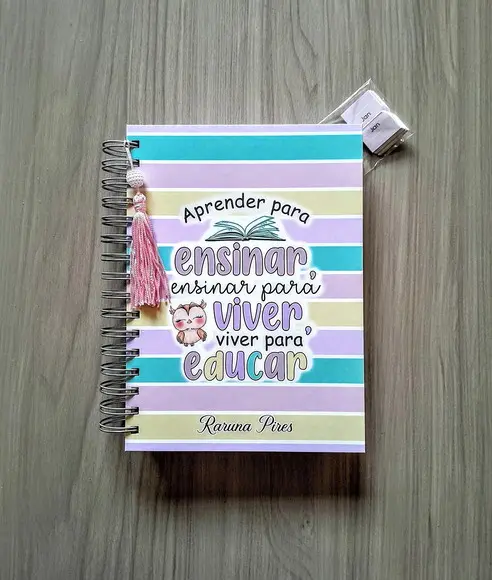 Jan
Jan
Aprender para
ensinar,
ensinar para
viver,
viver para
educar
Raruna Pires